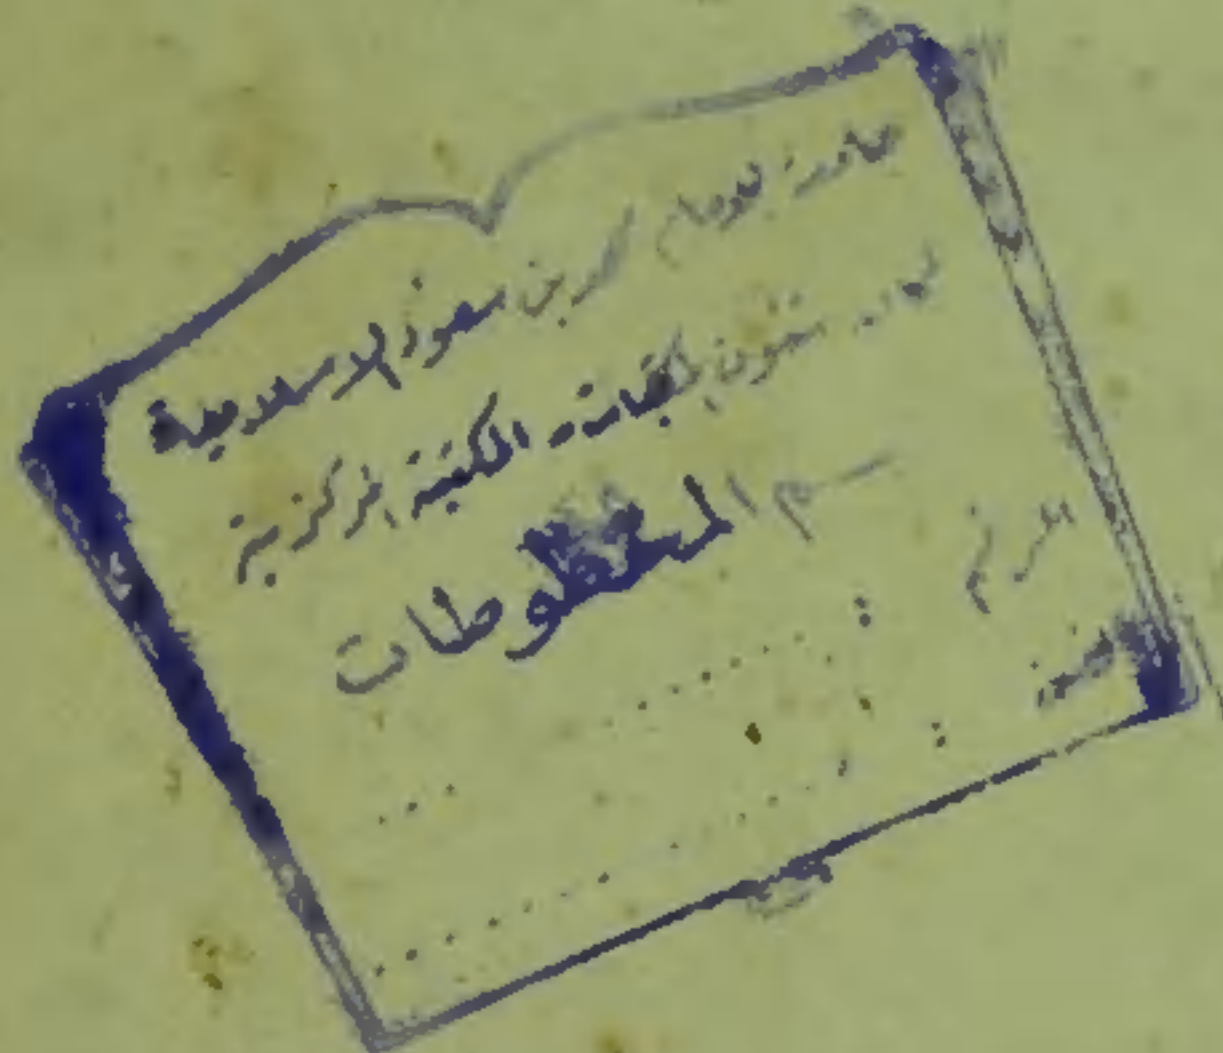 جامعة الإمام محمد بن سعود الإسلامية
عمادة شئون المكتبات المكتبة المركزية
قسم المخطوطات
الرقم :
التصنيف :